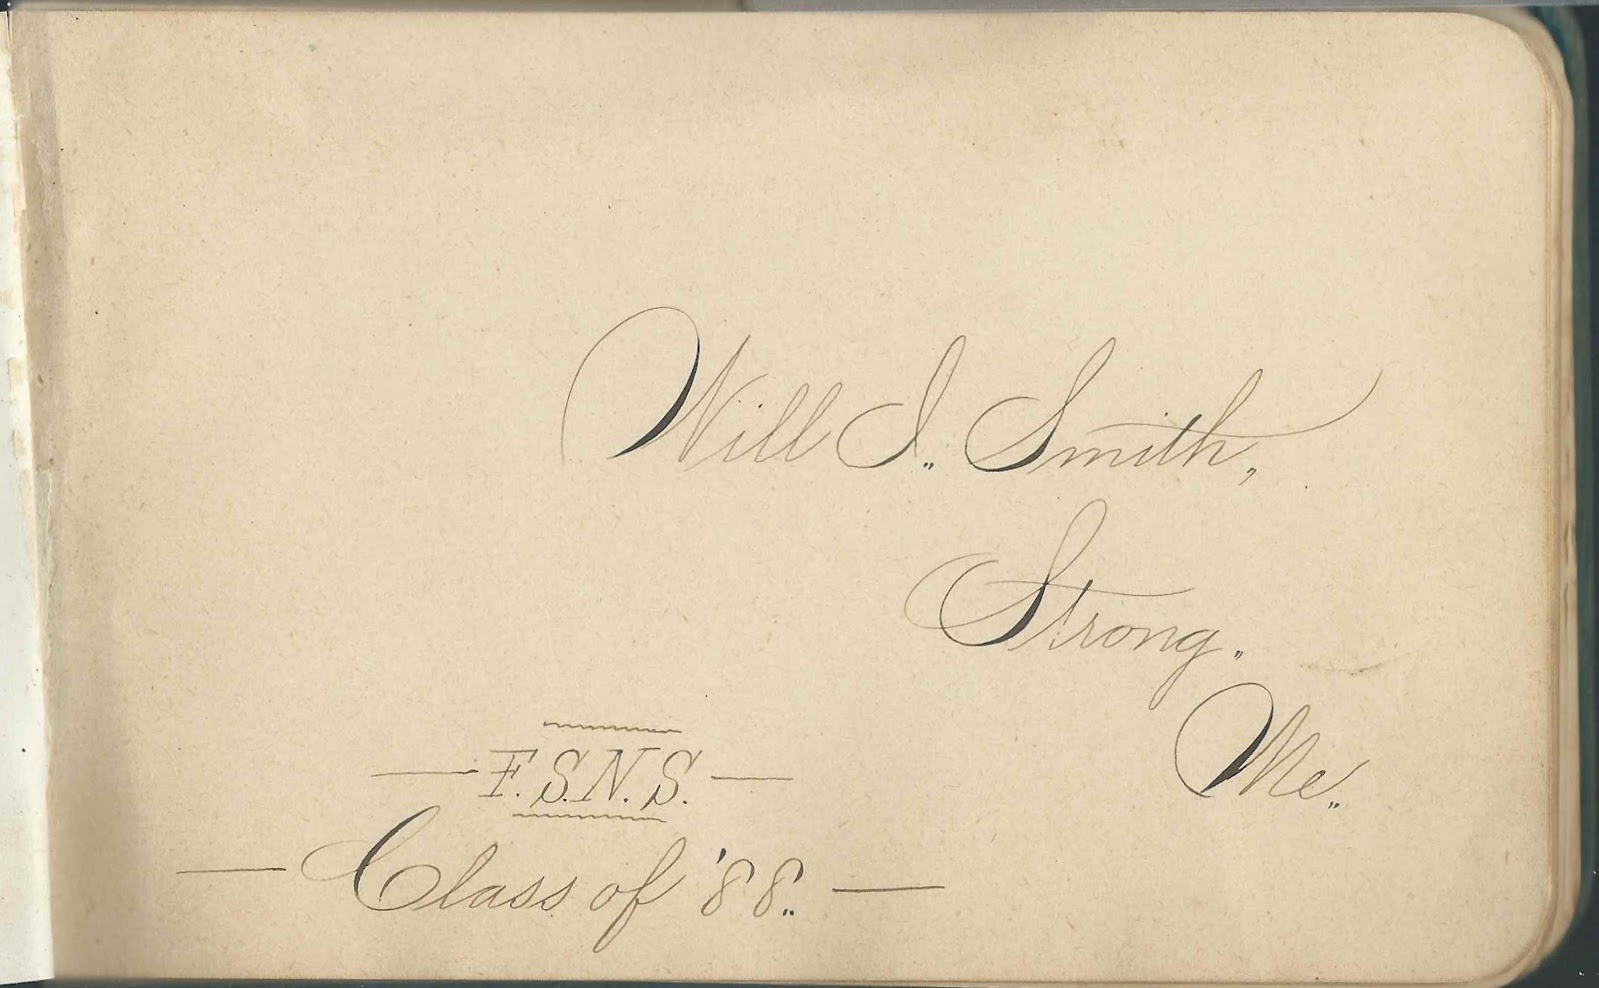 Will I. Smith,
Strong.
Me.
F.S.N.S.
Class of '88.